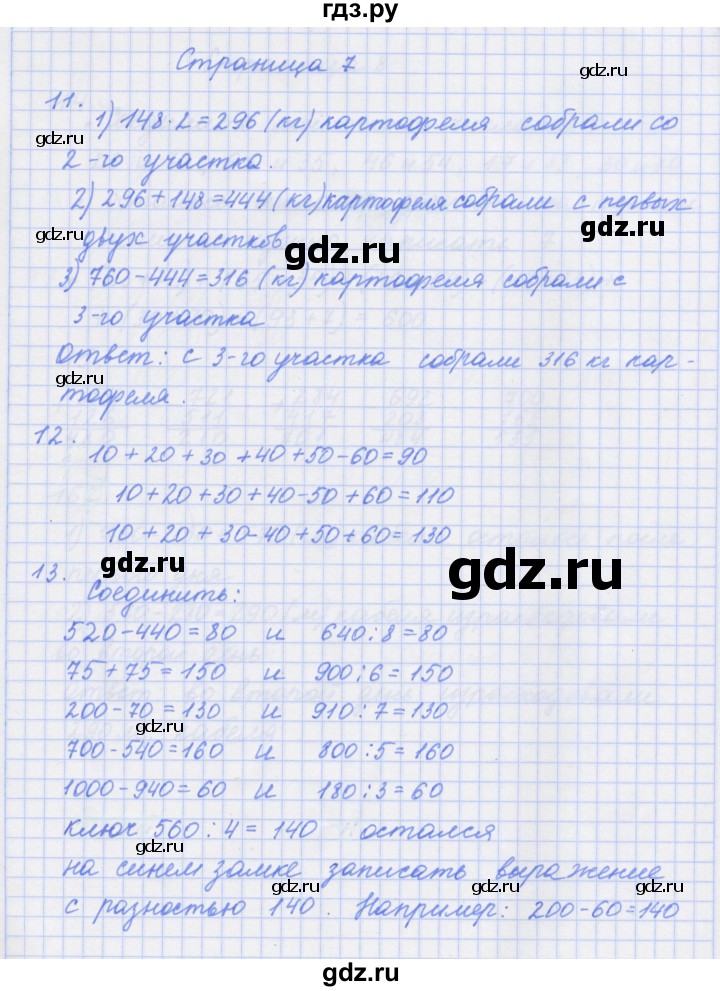 гдз.ру
Страница 7
gdz.ru
11.
1) 148·2=296 (кг) картофеля собрали со
gdz.ru
2-го участка.
2) 296+148=444 (кг) картофеля собрали с первых
gdz.ru
двух участков
gdz.ru
gdz.ru
3) 760-444=316 (кг) картофеля собрали с
3-го участка
Ответ: с 3-го участка собрали 316 кг кар-
gdz.ru
тофеля.
12.
10+20+30+40+50-60=90
10+20+30+40-50+60=110
10+20+30-40+50+60=130
gdz.ru
gdz.ru
13.
Соединить:
520-440=80 и 640:8=80
75+75=150 и 900:6=150
200-70=130 и 910:7=130
gdz.ru
gdz.ru
700-540=160 и 800:5=160
1000-940=60 и 180:3=60
ключ 560:4=140 остался
gdz.ru
на синем замке записать выражение
gdz.ru
gdz.ru
с разностью 140. Например: 200-60=140
gdz.ru
gdz.ru